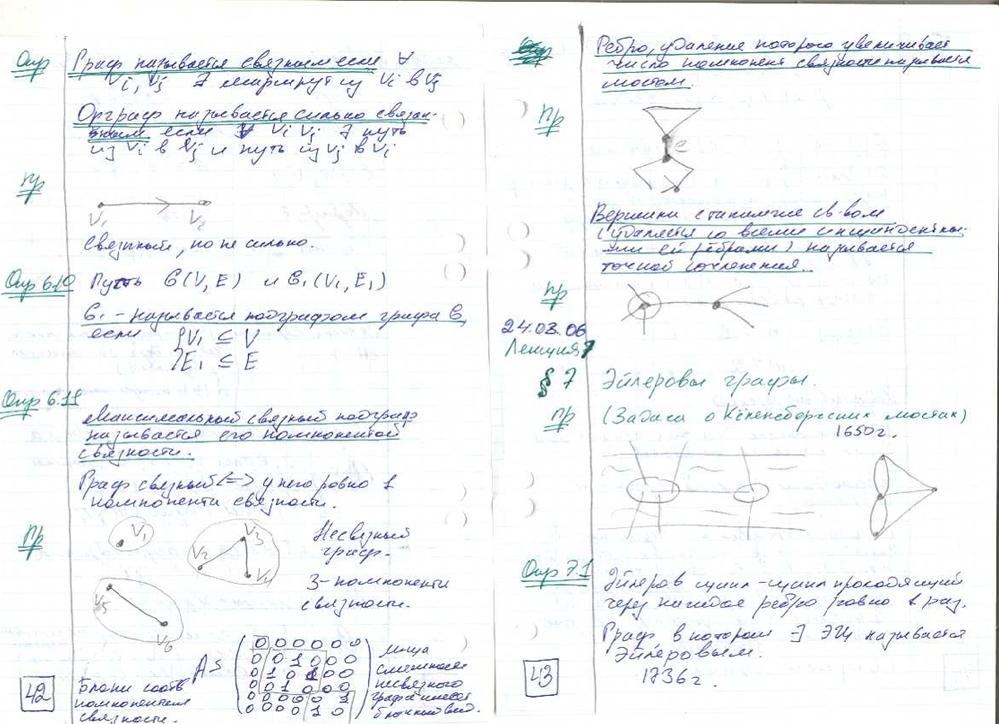 Опр Граф называется связным если ∀
Vi, Vj ∃ маршрут из Vi в Vj
Орграф называется сильно связан-
ным если ∀ Vi Vj ∃ путь
из Vi в Vj и путь из Vj в Vi
пр
V1 V2
Связный, но не сильно.
Опр 6.10 Путь G(V, E) и G1(V1, E1)
G1 - называется подграфом графа G
если {V1 ⊆ V
E1 ⊆ E
Опр 6.11
Максимальный связный подграф
называется его компонентой
связности.
Граф связный <=> у него ровно 1
компонента связности.
Пр
V1
V2 V3 V4
V5
V6
Несвязный
граф.
3-компоненты
связности.
AS
0 0 0 0 0 0
0 0 1 0 0 0
0 1 0 1 0 0
0 0 1 0 0 0
0 0 0 0 0 1
0 0 0 0 1 0
м-ца
смежности
несвязного
графа имеет
блочный вид.
42
Блоки соотв
компонентам
связности.
Ребро, удаление которого увеличивает
число компонент связности называется
мостом.
Пр
e
Вершины с таким же св-вом
(удаляется со всеми инцидентны-
ми ей рёбрами) называется
точкой сочленения.
пр
24.03.06
Лекция 7
§ 7 Эйлеровы графы.
пр (Задача о Кёненсбергских мостах)
1650г.
Опр 7.1 Эйлеров цикл - цикл проходящий
через каждое ребро ровно 1 раз.
Граф в котором ∃ ЭЦ называется
Эйлеровым.
1736г.
43